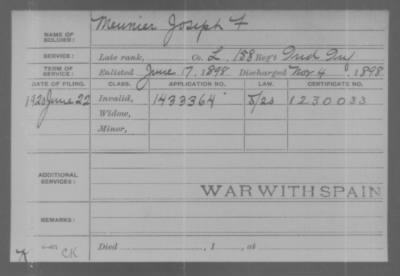 NAME OF SOLDIER: Meunier Joseph F
SERVICE: Late rank, Co. L, 158 Reg't Ind Inf
TERM OF SERVICE: Enlisted June 17, 1898 Discharged Nov. 4, 1898
DATE OF FILING. CLASS. APPLICATION NO. LAW. CERTIFICATE NO.
1920 June 22 Invalid, 1433364 1230033
Widow,
Minor,
ADDITIONAL SERVICES:
WAR WITH SPAIN
REMARKS:
Died , 1 , at
CK